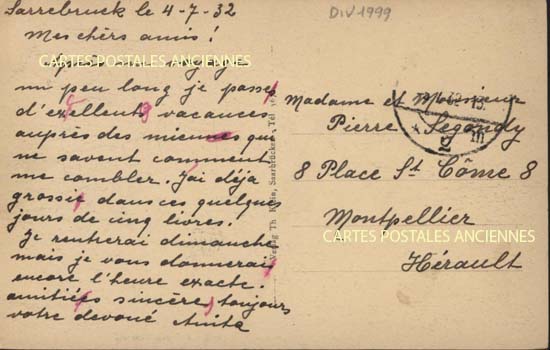 Sarrebruck le 4-7-32
Mes chèrs amis!
Après un voyage
un peu long je passe
d'exellents vacances
auprès des miennes que
ne savent comment
me combler. J'ai déja
grossie dans ces quelques
jours de cinq livres.
Je rentrerai dimanche
mais je vous donnerai
encore l'heure exacte.
amitiées sincère, toujours
votre devoué Anita
DIV1999
Madame et Monsieur
Pierre Segondy
8 Place St Côme 8
Montpellier
Hérault
Verlag Th. Saarbrücken, Tel
CARTES POSTALES ANCIENNES
CARTES POSTALES ANCIENNES